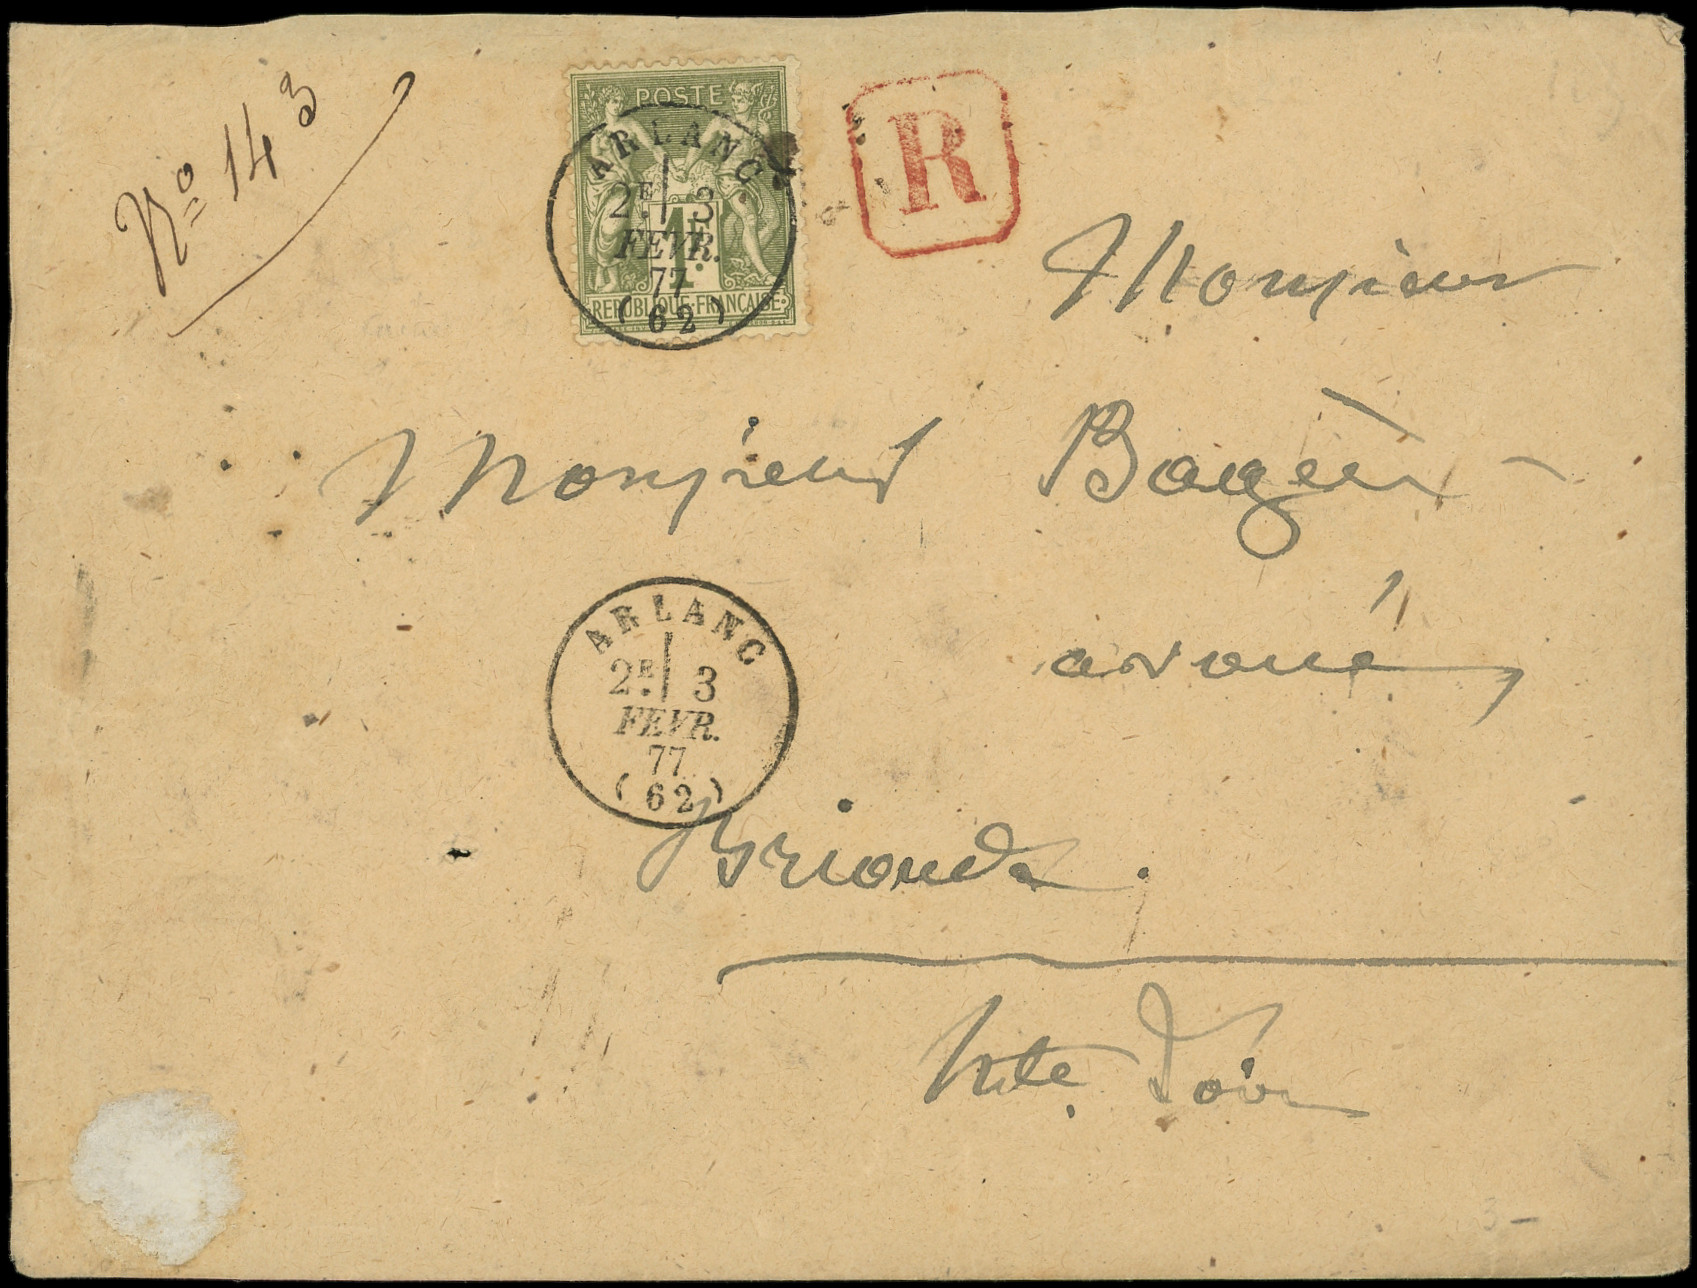 No 143
POSTE
1F.
REPUBLIQUE FRANÇAISE
ARLANC
2E 3
FEVR.
77
(62)
R
Monsieur
Monsieur Bagès
avoué
ARLANC
2E 3
FEVR.
77
(62)
Brioude.
Hte. Loire
3-